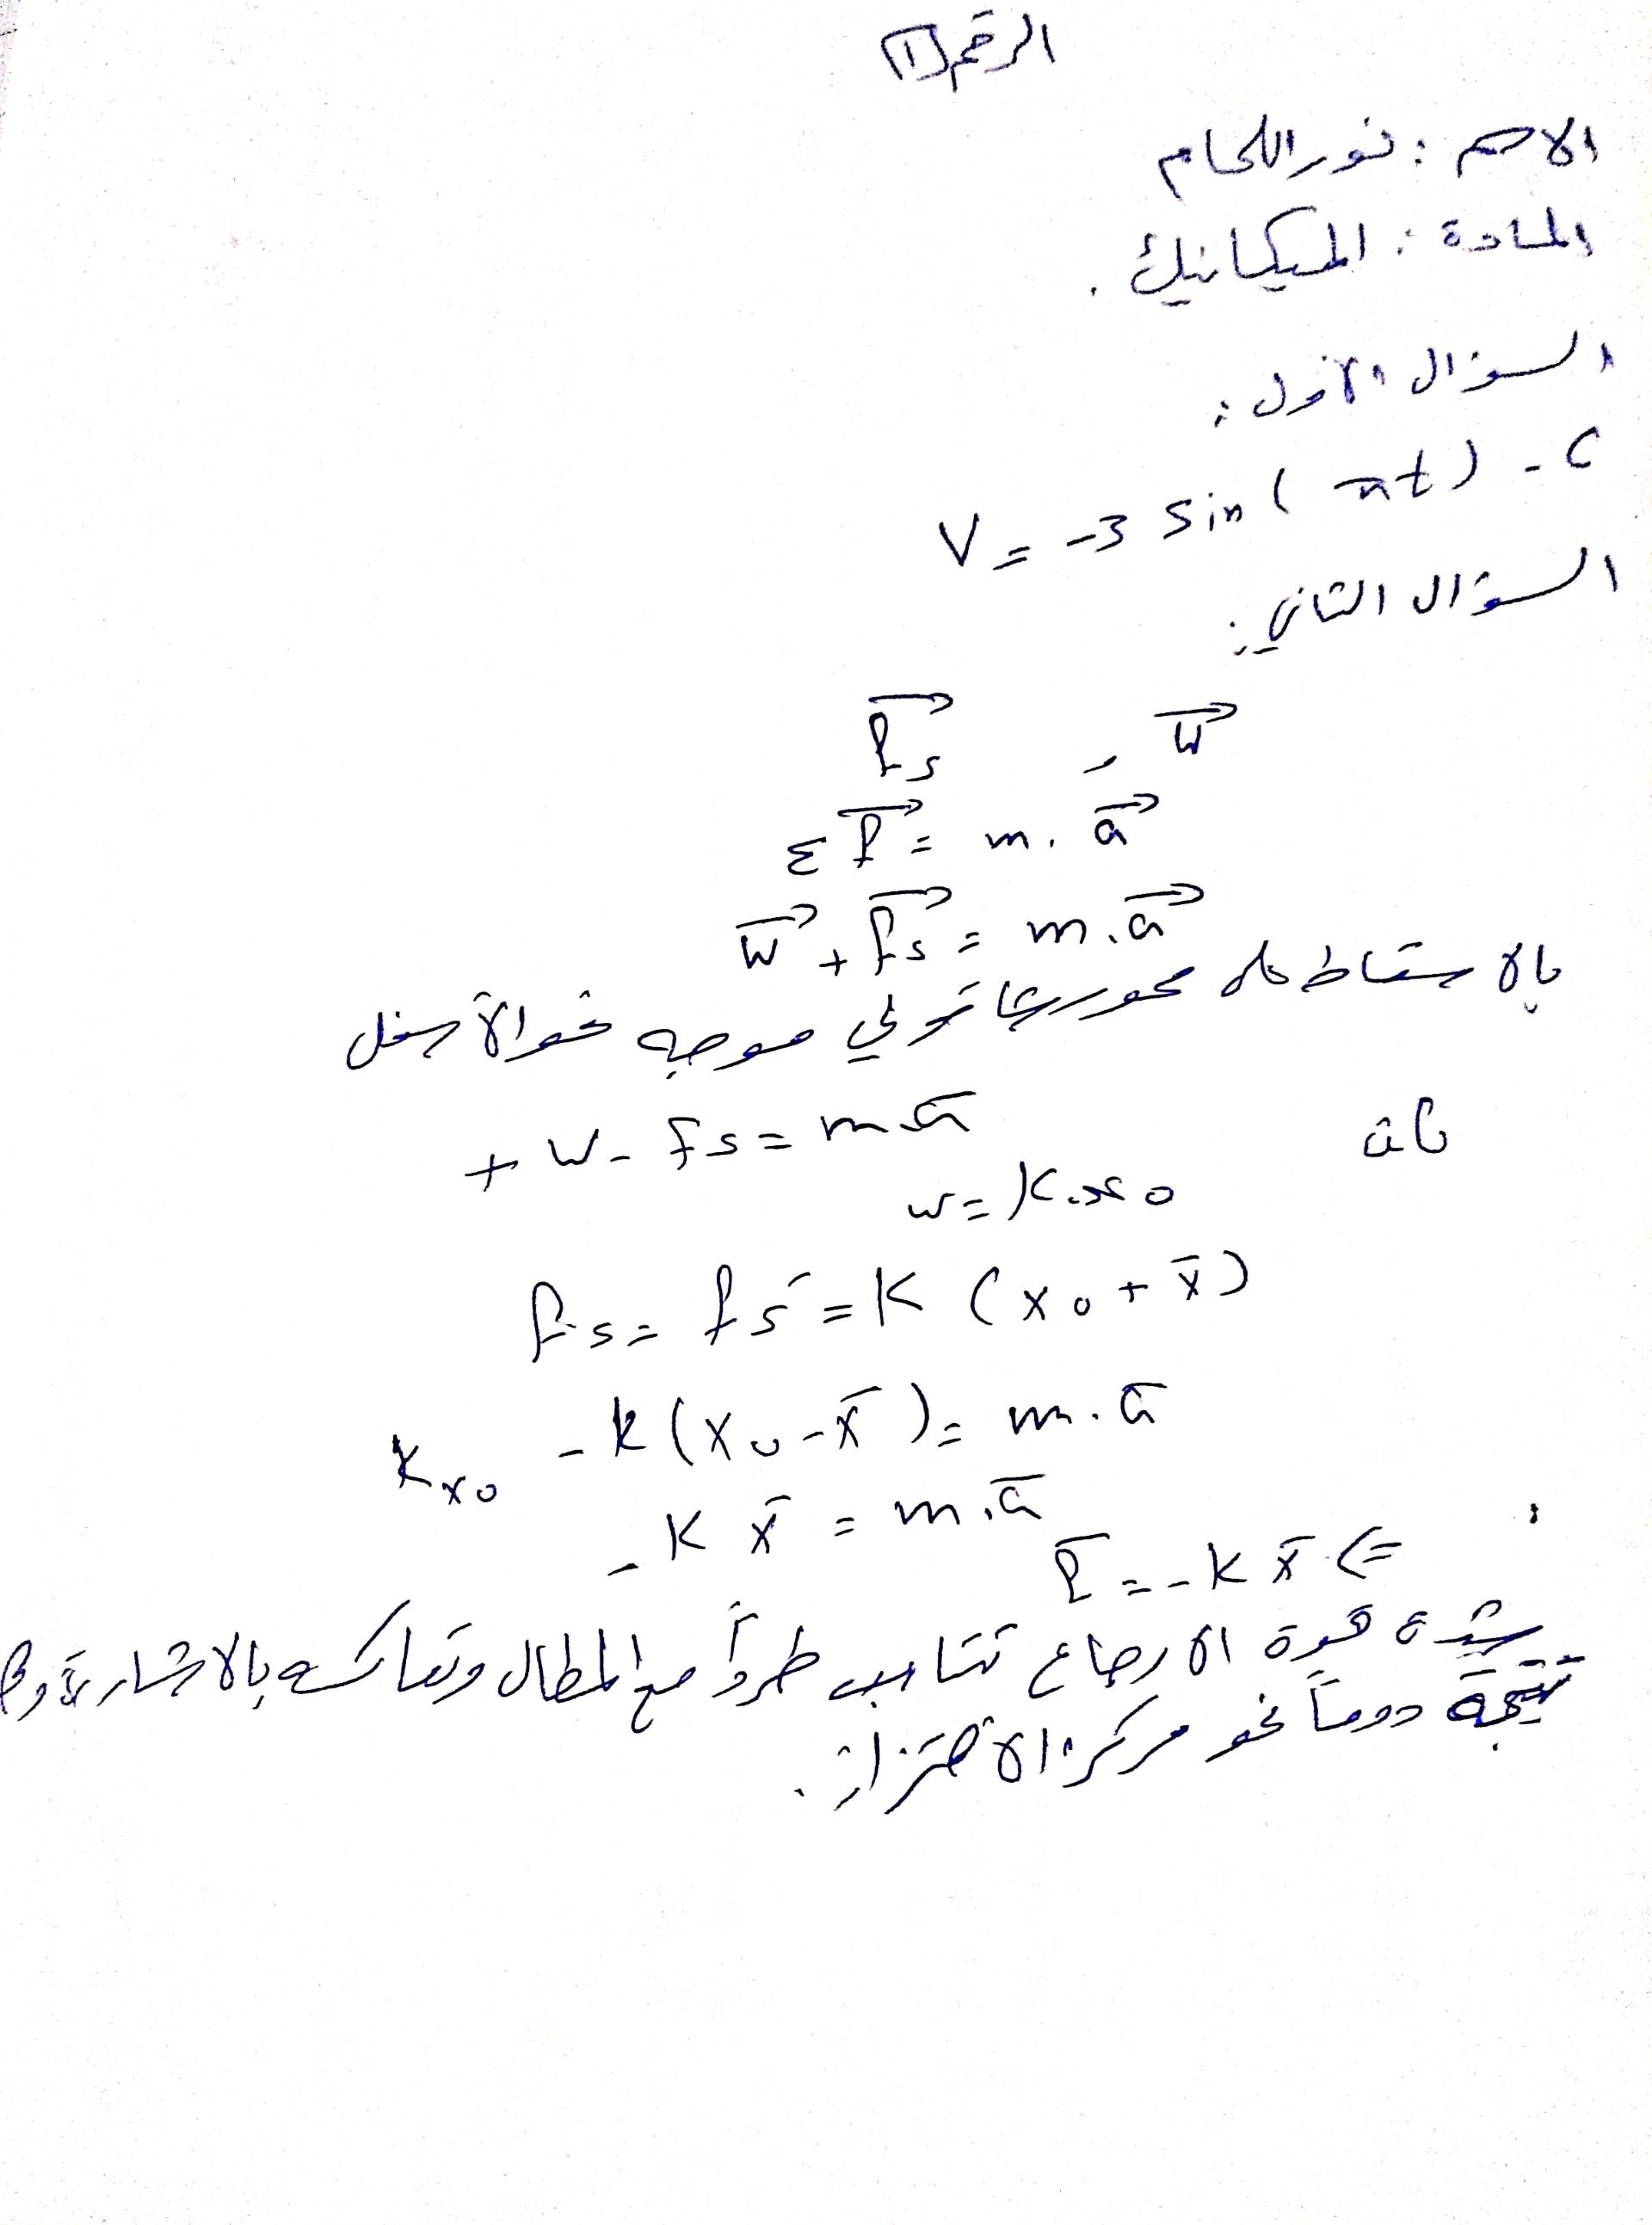 الرقم (1)
الاسم : نور اللحام
المادة : الميكانيك .
السؤال الأول :
C - V = -3 sin ( πt )
السؤال الثاني :
W⃗ , Fs⃗
Σ F⃗ = m . a⃗
W⃗ + Fs⃗ = m . a⃗
بالاسقاط على محور شاقولي موجه نحو الأسفل
+ W - Fs = m a̅
w = K . x0
Fs = Fs′ = K ( x0 + x̅ )
K x0 - K ( x0 - x̅ ) = m . a̅
- K x̅ = m . a̅
=> F̅ = - K x̅
شدة قوة الارجاع تتناسب طرداً مع المطال وتعاكسه بالاشارة
تتجه دوماً نحو مركز الاهتزاز .